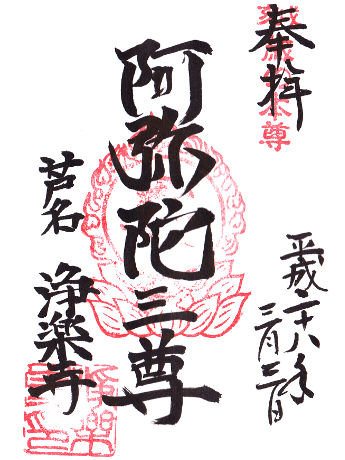 奉拝
平成二十八年
三月三日
阿弥陀三尊
芦名
浄楽寺